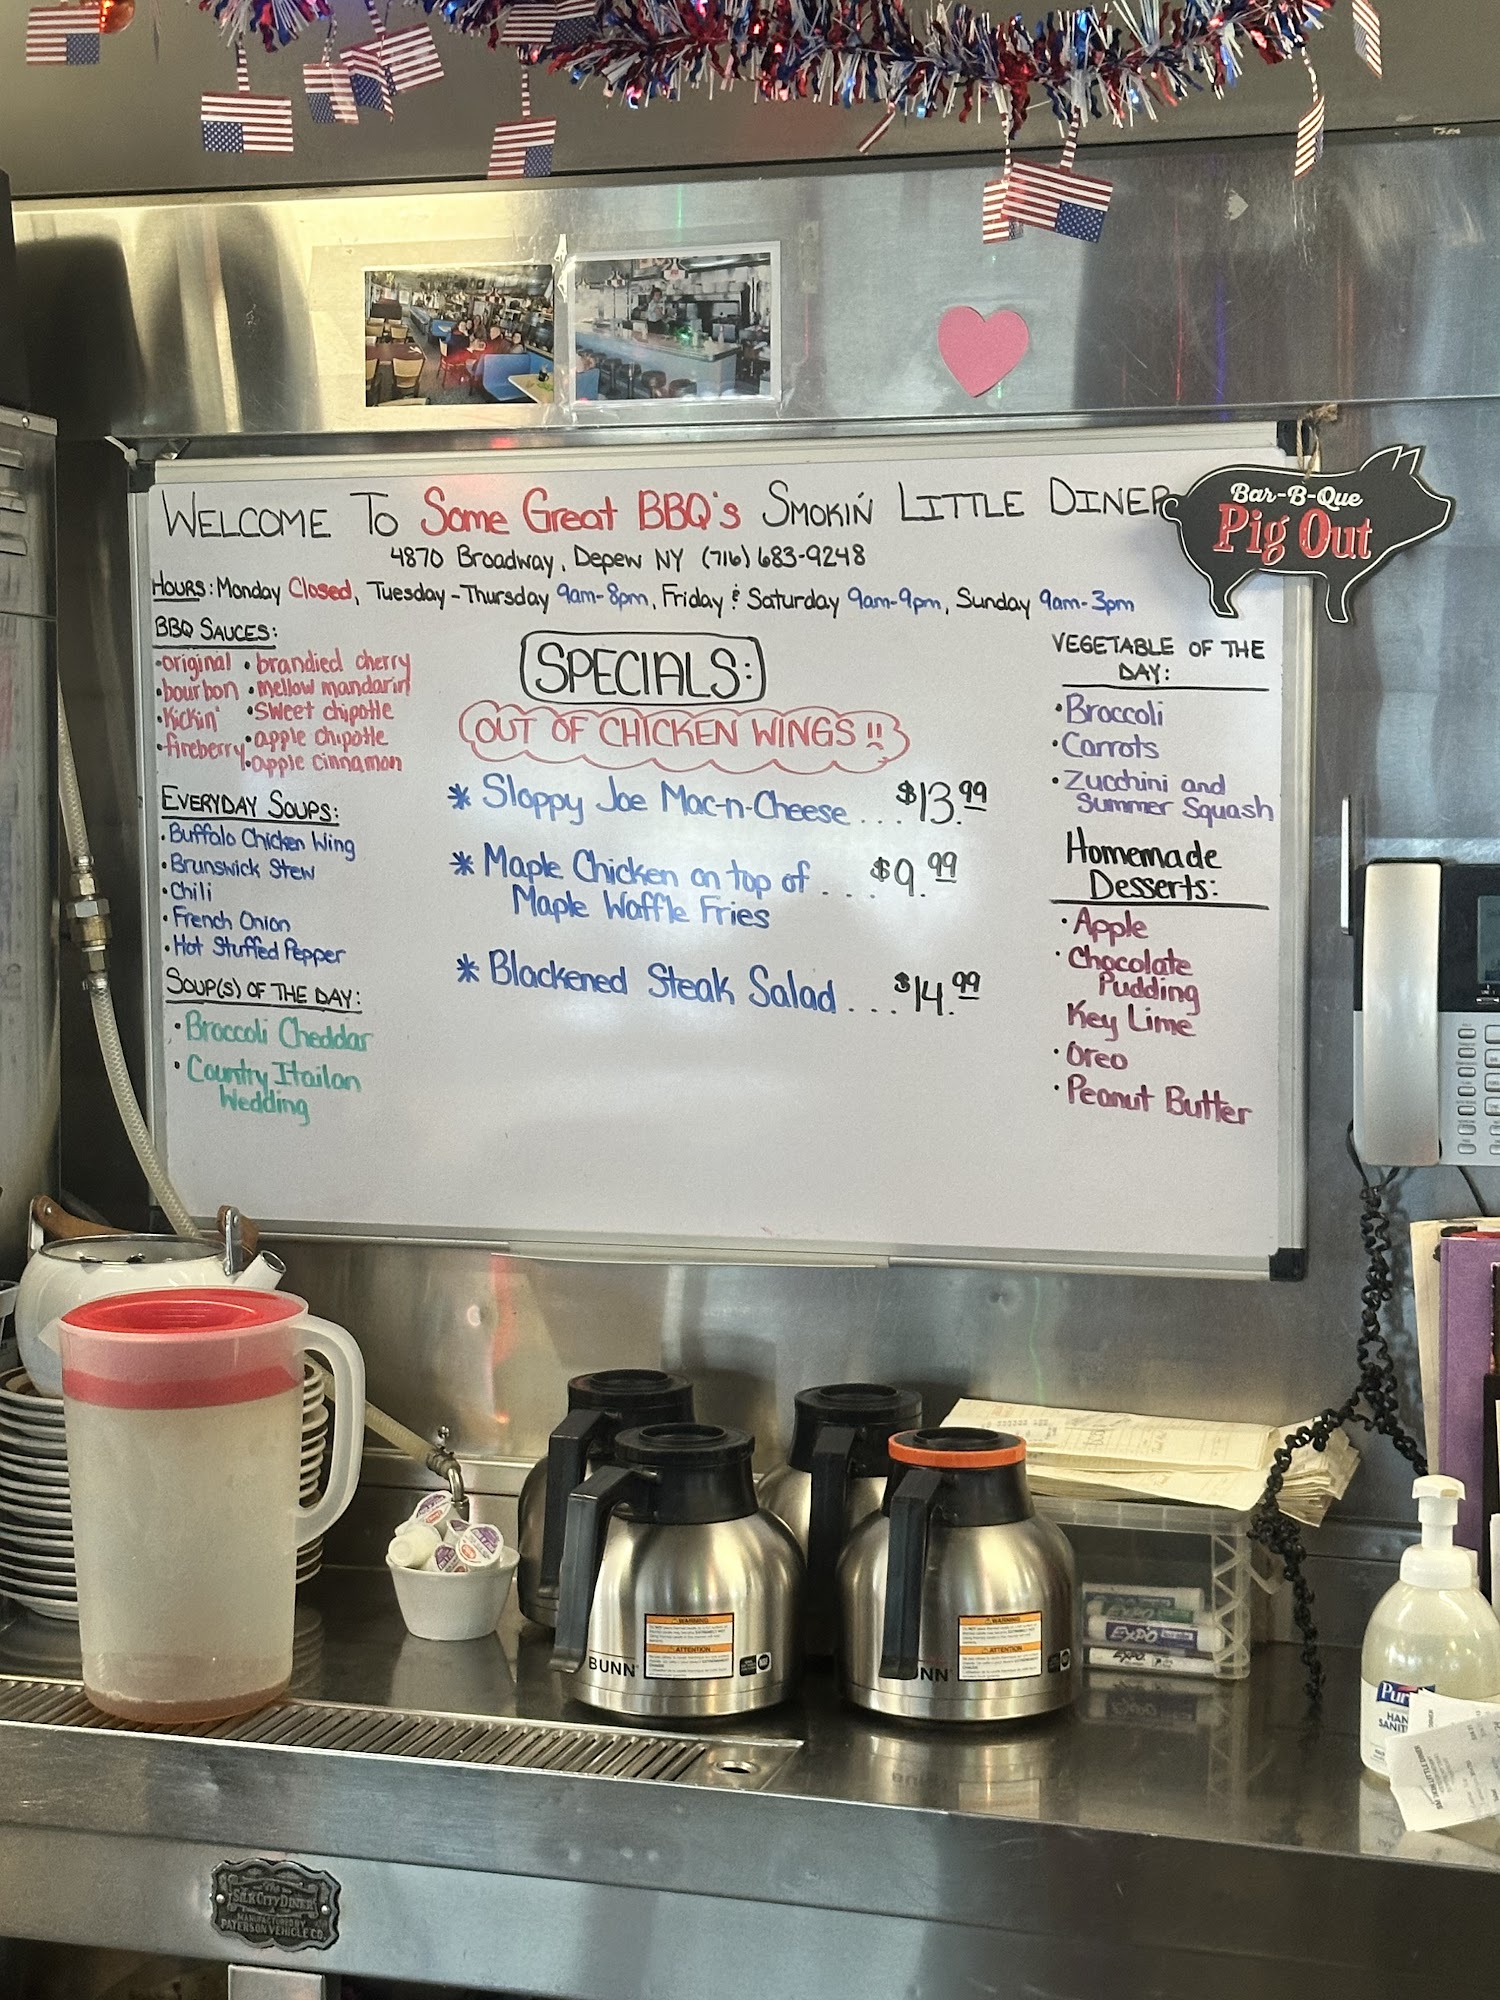 WELCOME TO Some Great BBQ's SMOKIN' LITTLE DINER
Bar-B-Que
Pig Out
4870 Broadway, Depew NY (716) 683-9248
HOURS: Monday Closed, Tuesday - Thursday 9am-8pm, Friday & Saturday 9am-9pm, Sunday 9am-3pm
BBQ SAUCES:
•original •brandied cherry
•bourbon •mellow mandarin
•Kickin' •sweet chipotle
•fireberry •apple chipotle
•apple cinnamon
EVERYDAY SOUPS:
•Buffalo Chicken Wing
•Brunswick Stew
•Chili
•French Onion
•Hot Stuffed Pepper
SOUP(S) OF THE DAY:
•Broccoli Cheddar
•Country Itailan
Wedding
SPECIALS:
OUT OF CHICKEN WINGS !!
* Sloppy Joe Mac-n-Cheese... $13.99
* Maple Chicken on top of ... $9.99
Maple Waffle Fries
* Blackened Steak Salad... $14.99
VEGETABLE OF THE
DAY:
•Broccoli
•Carrots
•Zucchini and
Summer Squash
Homemade
Desserts:
•Apple
•Chocolate
Pudding
Key Lime
•Oreo
•Peanut Butter
WARNING
ATTENTION
BUNN
WARNING
ATTENTION
EXPO
EXPO
SILK CITY DINER
MANUFACTURED BY
PATERSON VEHICLE CO.